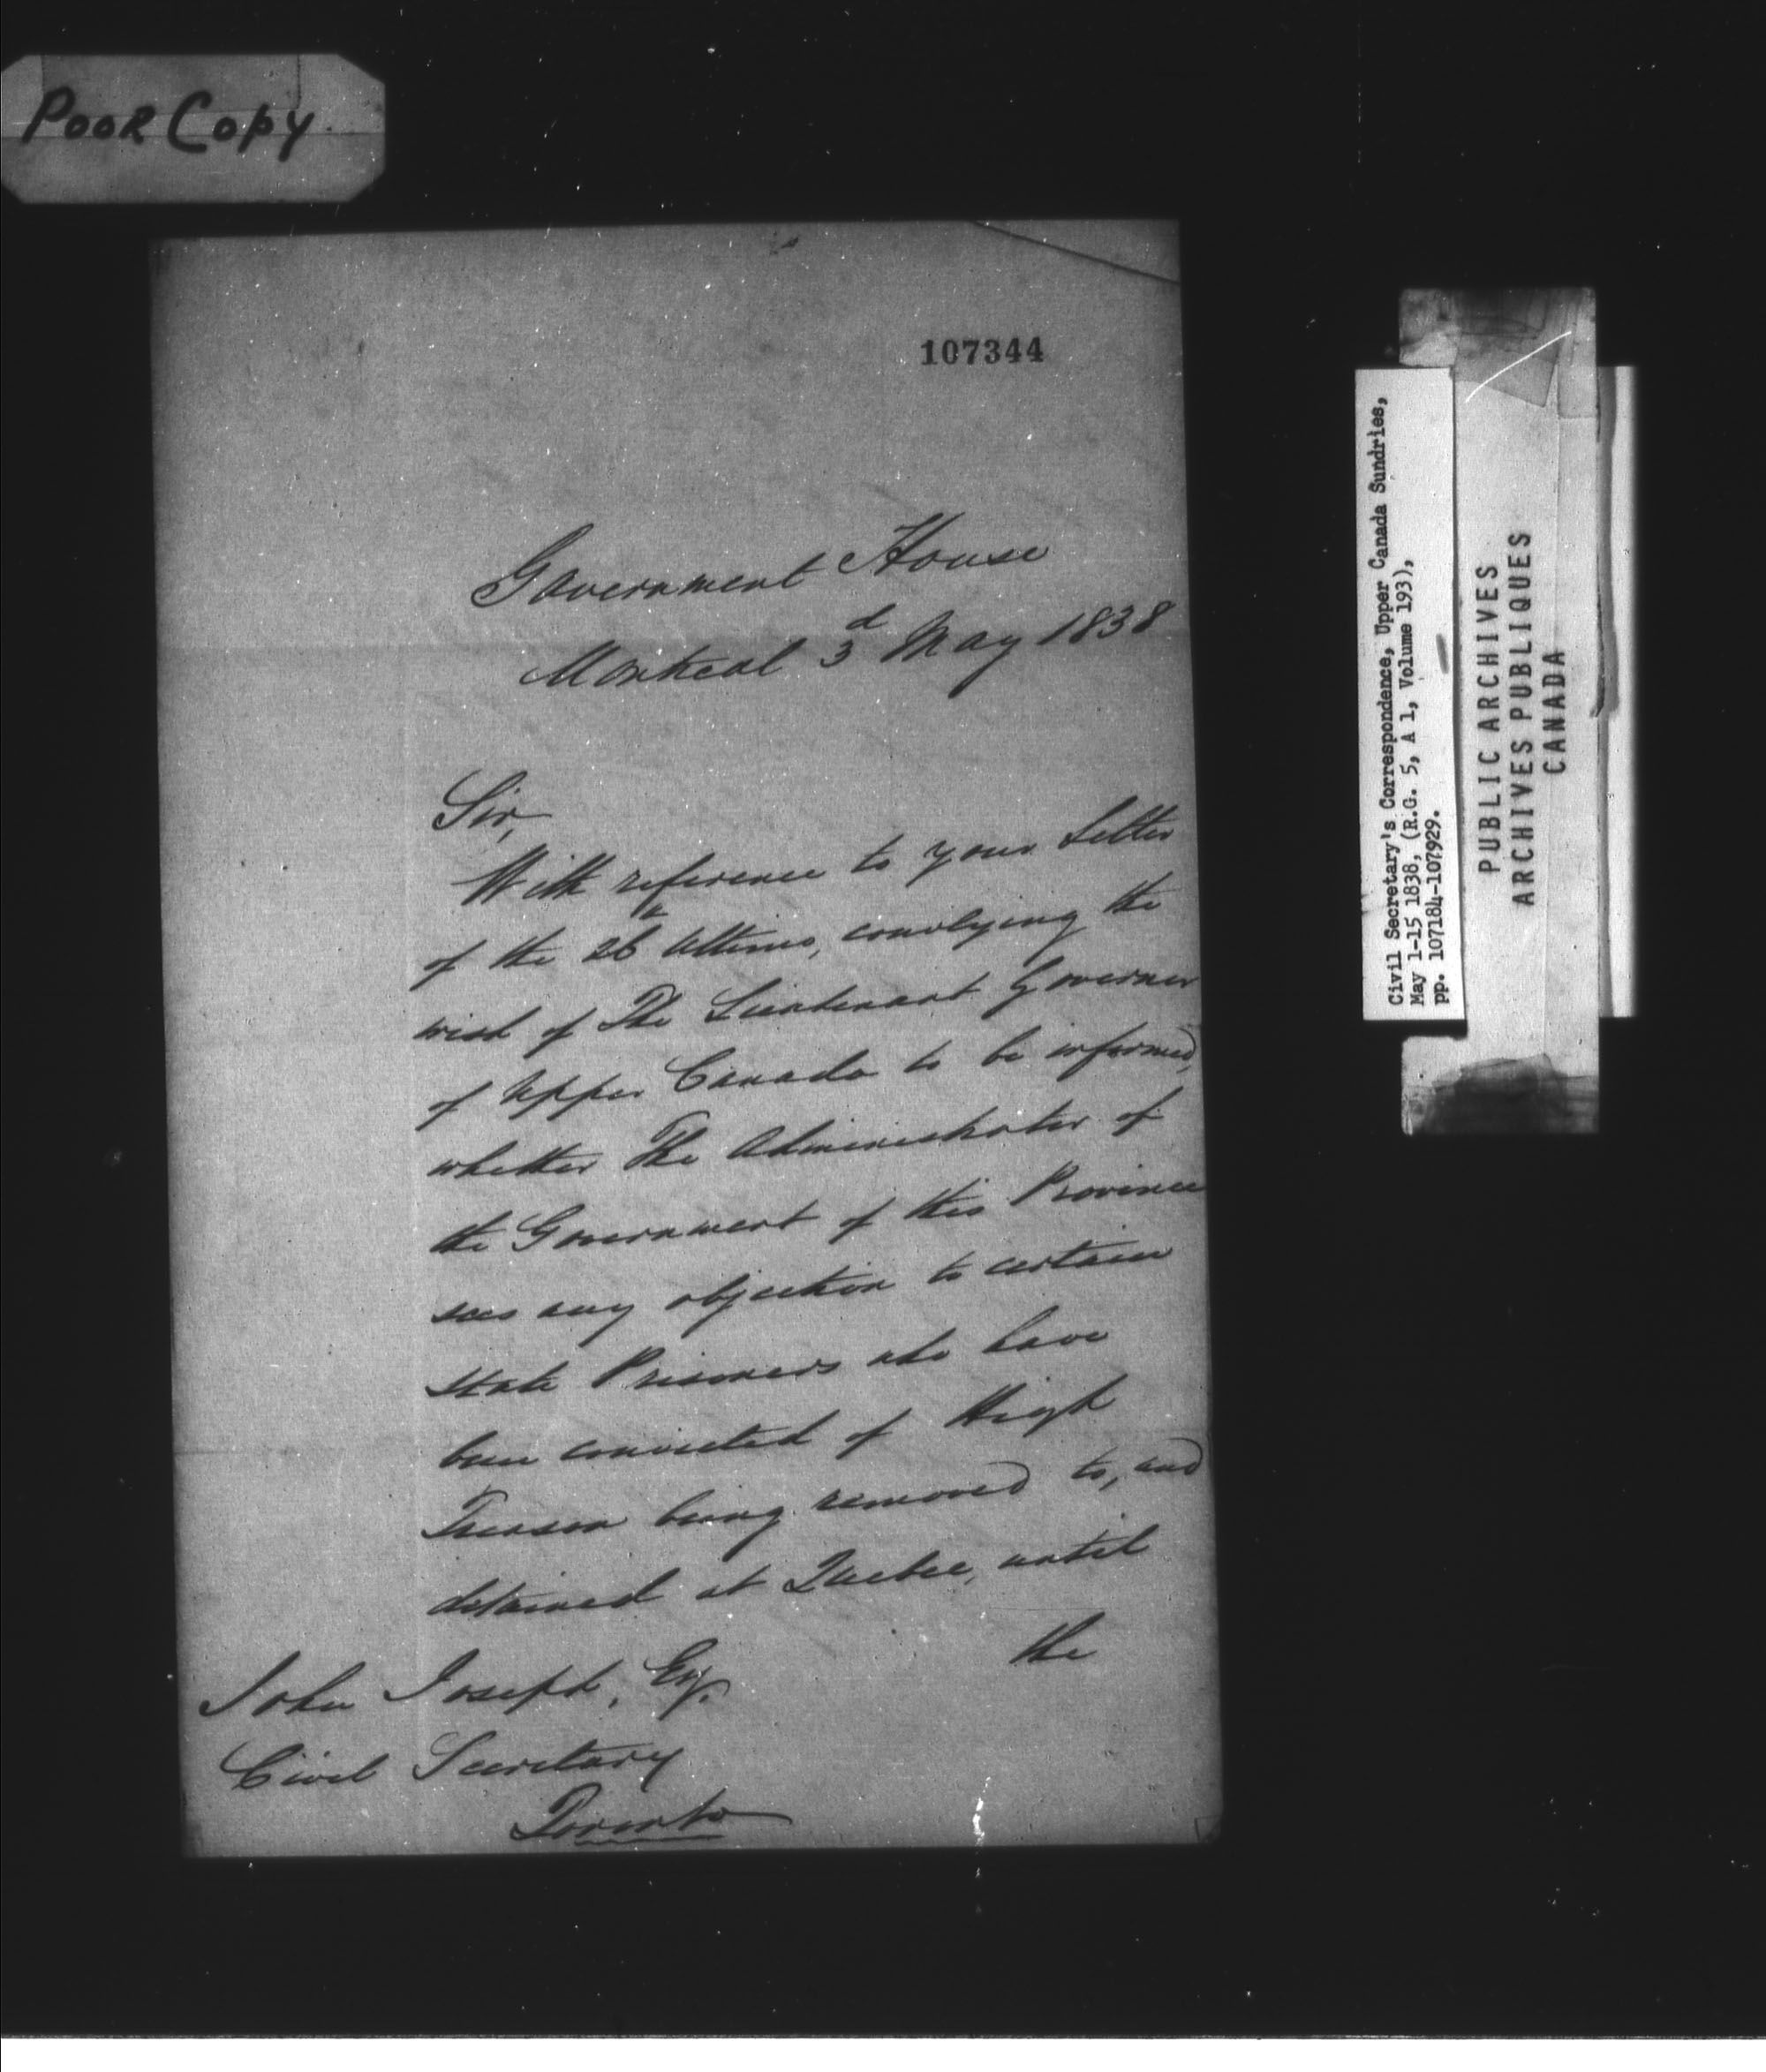 Poor Copy.
107344
Government House
Montreal 3d May 1838
Sir,
With reference to your Letter
of the 26th Ultimo, conveying the
wish of The Lieutenant Governor
of Upper Canada to be informed,
whether The Administrator of
the Government of this Province
sees any objection to certain
State Prisoners who have
been convicted of High
Treason being removed to, and
detained at Quebec, until
the
John Joseph, Esq.
Civil Secretary
Toronto
Civil Secretary's Correspondence, Upper Canada Sundries,
May 1-15 1838, (R.G. 5, A 1, Volume 193),
pp. 107184-107929.
PUBLIC ARCHIVES
ARCHIVES PUBLIQUES
CANADA